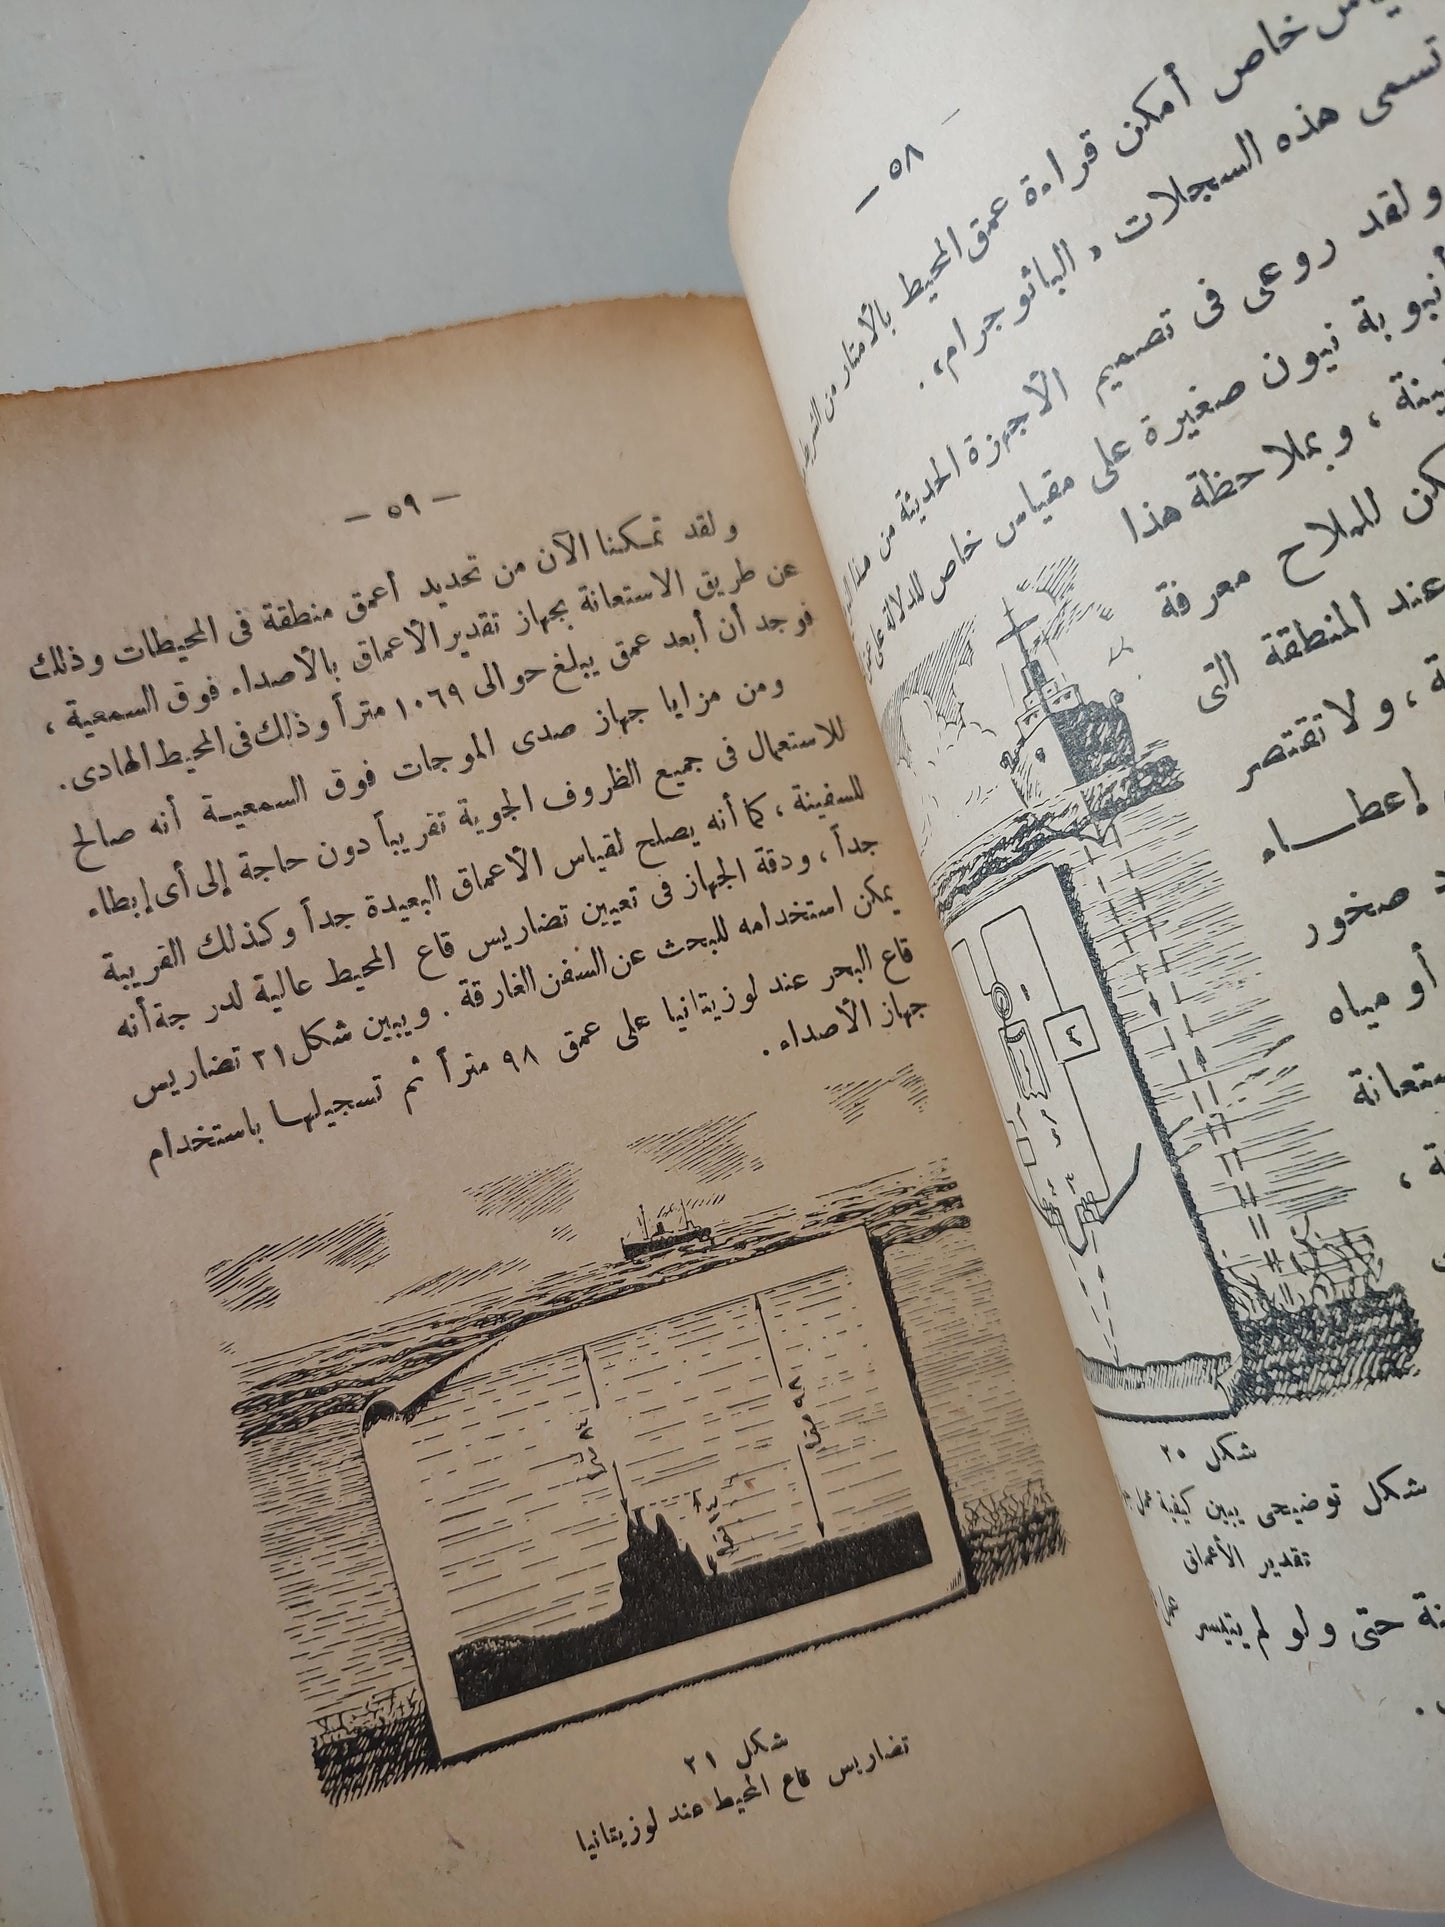 — ٥٨ —
خاص أمكن قراءة عمق المحيط بالأمتار من
تسمى هذه السجلات « الباثوجرام » .
ولقد روعى فى تصميم الأجهزة الحديثة من هذا
أنبوبة نيون صغيرة على مقياس خاص للدلالة على
، وبملاحظة هذا
للملاح معرفة
عند المنطقة التى
، ولا تقتصر
إعطــاء
صخور
أو مياه
شكل ٢٥
شكل توضيحى يبين كيفية عمل
تقدير الأعماق
حتى ولو لم يتيسر
— ٥٩ —
ولقد تمكنا الآن من تحديد أعمق منطقة فى المحيطات وذلك
عن طريق الاستعانة بجهاز تقدير الأعماق بالأصداء فوق السمعية ،
فوجد أن أبعد عمق يبلغ حوالى ١٠٦٩ متراً وذلك فى المحيط الهادى .
ومن مزايا جهاز صدى الموجات فوق السمعيــة أنه صالح
للاستعمال فى جميع الظروف الجوية تقريباً دون حاجة إلى أى إبطاء
للسفينة ، كما أنه يصلح لقياس الأعماق البعيدة جداً وكذلك القريبة
جداً ، ودقة الجهاز فى تعيين تضاريس قاع المحيط عالية لدرجة أنه
يمكن استخدامه للبحث عن السفن الغارقة . ويبين شكل ٢١ تضاريس
قاع البحر عند لوزيتانيا على عمق ٩٨ متراً ثم تسجيلها باستخدام
جهاز الأصداء .
شكل ٢١
تضاريس قاع المحيط عند لوزيتانيا